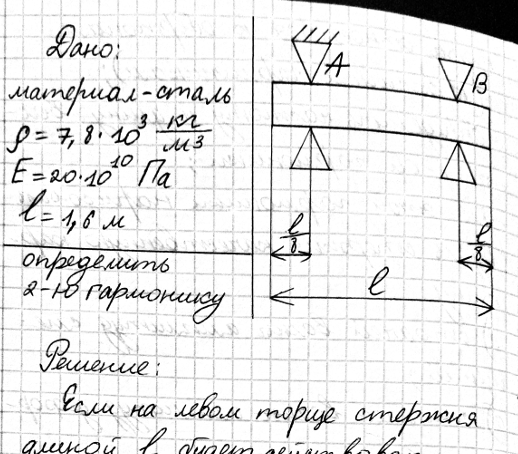 Дано:
материал-сталь
ρ = 7,8·10³ кг/м³
E = 20·10¹⁰ Па
l = 1,6 м
определить
2-ю гармонику
A
B
l/8
l/8
l
Решение:
Если на левом торце стержня
длиной l будет действовать